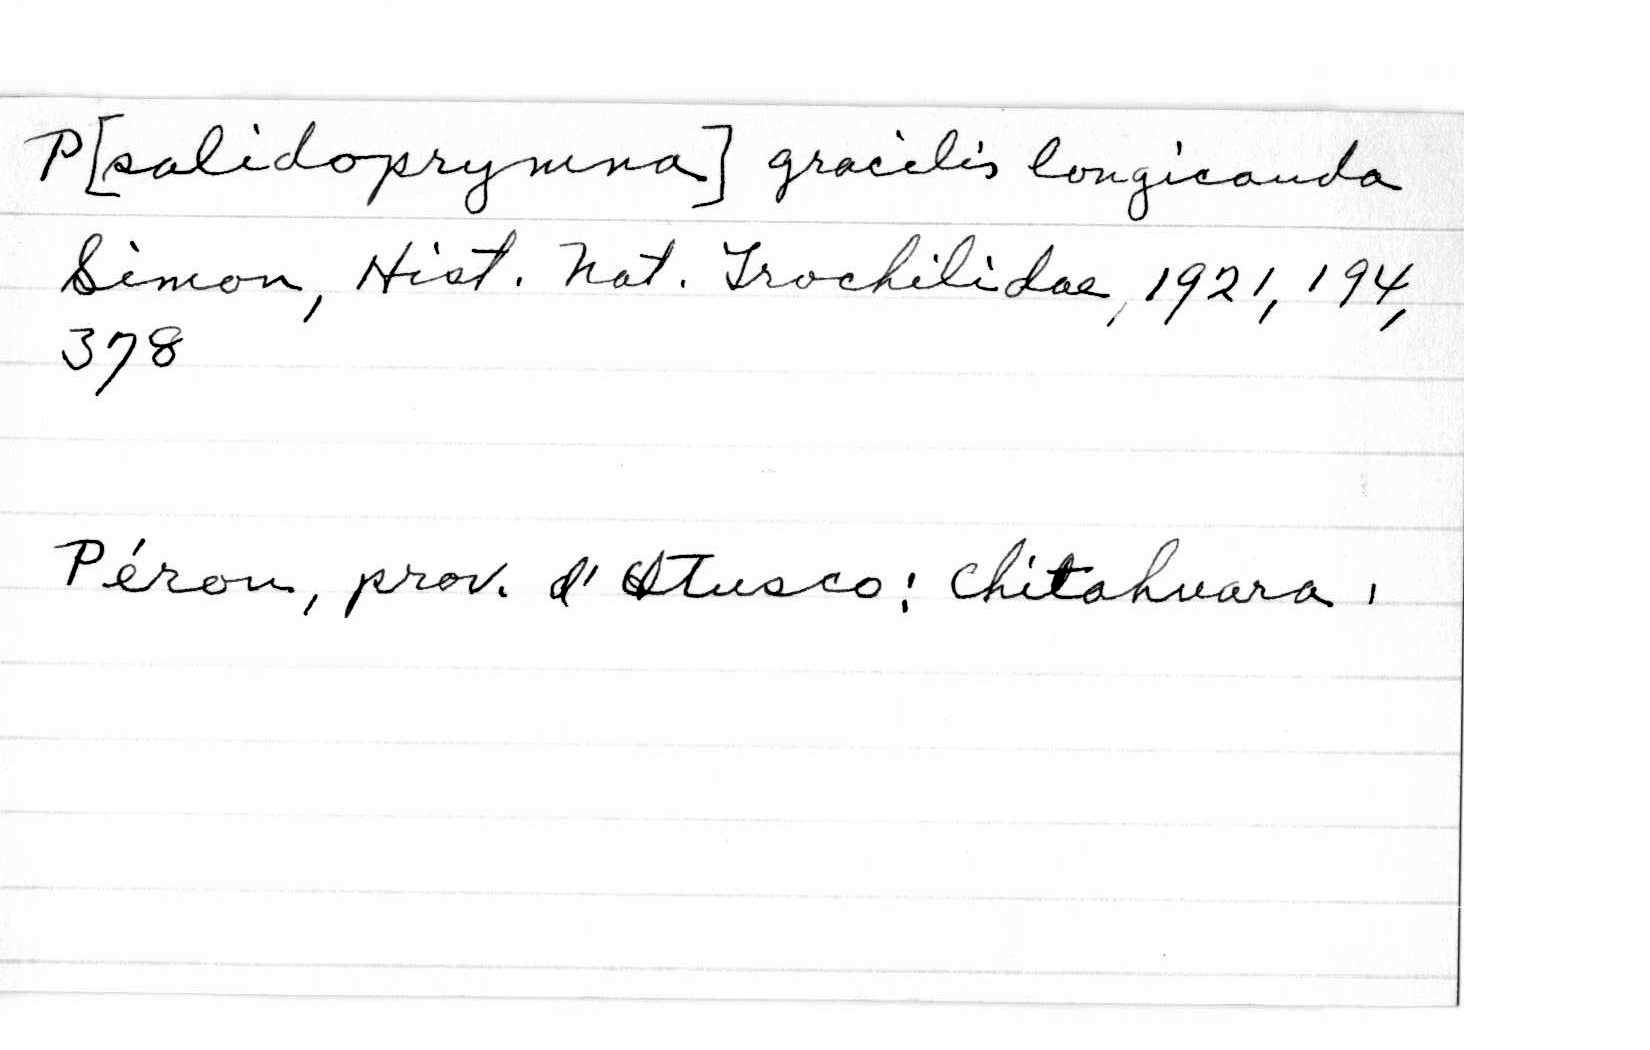 P[salidoprymna] gracilis longicauda
Simon, Hist. Nat. Trochilidae, 1921, 194,
378
Pérou, prov. d'Otusco: Chitahuara.